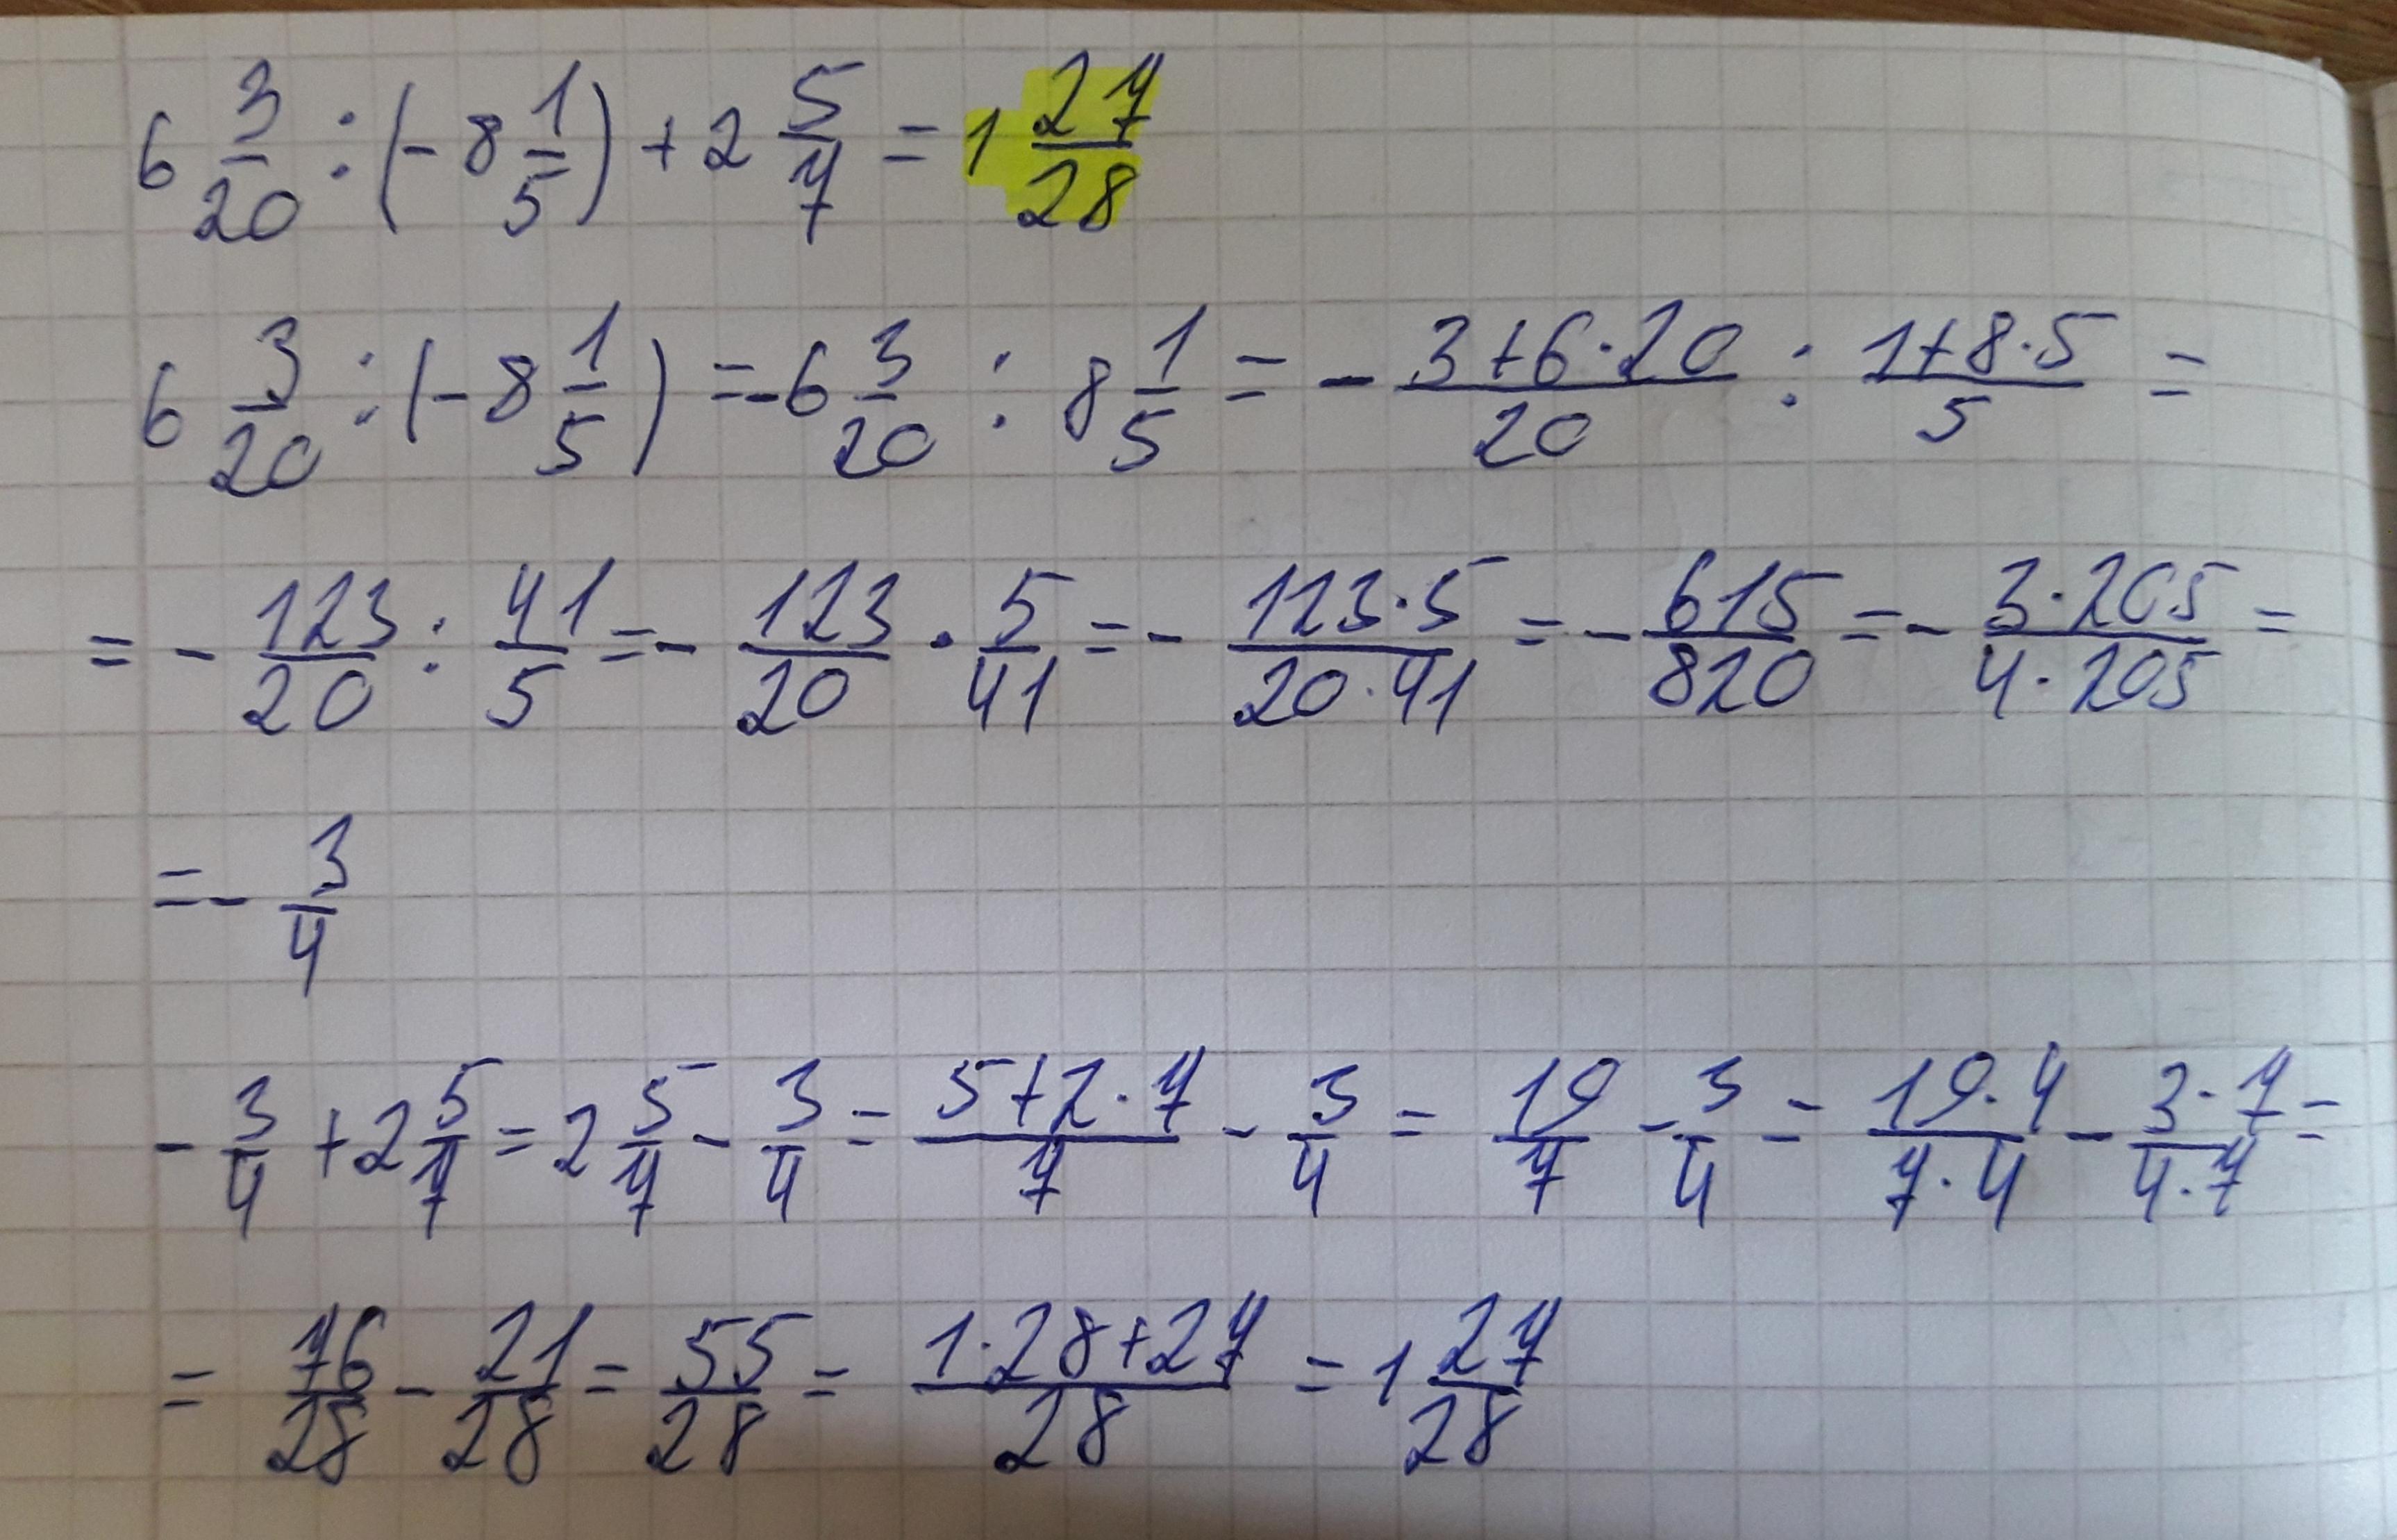 6 3/20 : (- 8 1/5) + 2 5/7 = 1 27/28
6 3/20 : (- 8 1/5) = - 6 3/20 : 8 1/5 = - (3+6·20)/20 : (1+8·5)/5 =
= - 123/20 : 41/5 = - 123/20 · 5/41 = - (123·5)/(20·41) = - 615/820 = - (3·205)/(4·205) =
= - 3/4
- 3/4 + 2 5/7 = 2 5/7 - 3/4 = (5+2·7)/7 - 3/4 = 19/7 - 3/4 = (19·4)/(7·4) - (3·7)/(4·7) =
= 76/28 - 21/28 = 55/28 = (1·28+27)/28 = 1 27/28